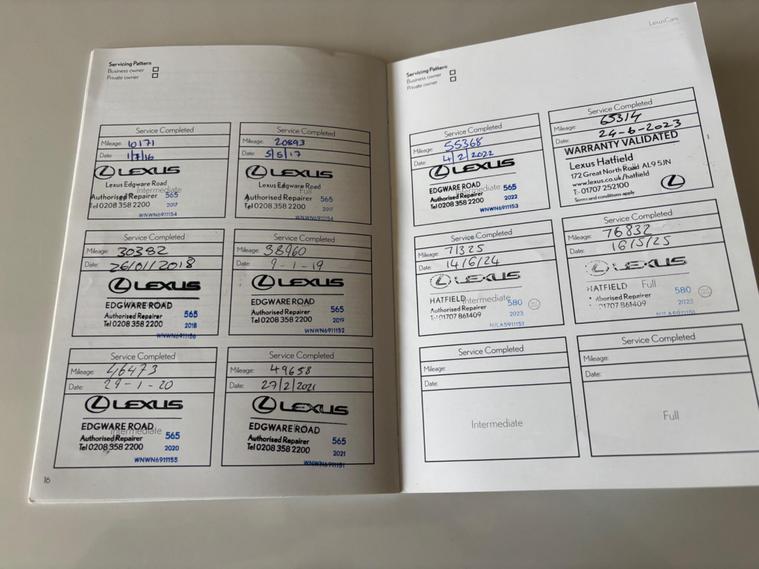 Servicing Pattern
Business owner
Private owner
Service Completed
Mileage: 10171
Date: 1/7/16
LEXUS
Lexus Edgware Road
Intermediate
Authorised Repairer 565
Tel 0208 358 2200 2017
WNWN6911154
Service Completed
Mileage: 20893
Date: 5/5/17
LEXUS
Lexus Edgware Road
Full
Authorised Repairer 565
Tel 0208 358 2200 2017
WNWN6911154
Service Completed
Mileage: 30392
Date: 26/01/2018
LEXUS
EDGWARE ROAD
Authorised Repairer 565
Tel 0208 358 2200 2018
WNWN6911156
Service Completed
Mileage: 38960
Date: 9-1-19
LEXUS
EDGWARE ROAD
Authorised Repairer 565
Tel 0208 358 2200 2019
WNWN6911152
Service Completed
Mileage: 46473
Date: 29-1-20
LEXUS
EDGWARE ROAD
Intermediate
Authorised Repairer 565
Tel 0208 358 2200 2020
WNWN6911155
Service Completed
Mileage: 49658
Date: 27/2/2021
LEXUS
EDGWARE ROAD
Authorised Repairer 565
Tel 0208 358 2200 2021
WNWN6911151
16
LexusCare
Servicing Pattern
Business owner
Private owner
Service Completed
Mileage: 55368
Date: 4/2/2022
LEXUS
EDGWARE ROAD
Intermediate
Authorised Repairer 565
Tel 0208 358 2200 2022
WNWN6911153
Service Completed
Mileage: 65314
Date: 24-6-2023
WARRANTY VALIDATED
Lexus Hatfield
172 Great North Road AL9 5JN
www.lexus.co.uk/hatfield
T- 01707 252100
Terms and conditions apply
Service Completed
Mileage: 71325
Date: 14/6/24
LEXUS
HATFIELD
Intermediate
Authorised Repairer 580
01707 861409 2023
Service Completed
Mileage: 76832
Date: 16/5/25
LEXUS
HATFIELD
Full
Authorised Repairer 580
01707 861409 2023
Service Completed
Mileage:
Date:
Intermediate
Service Completed
Mileage:
Date:
Full